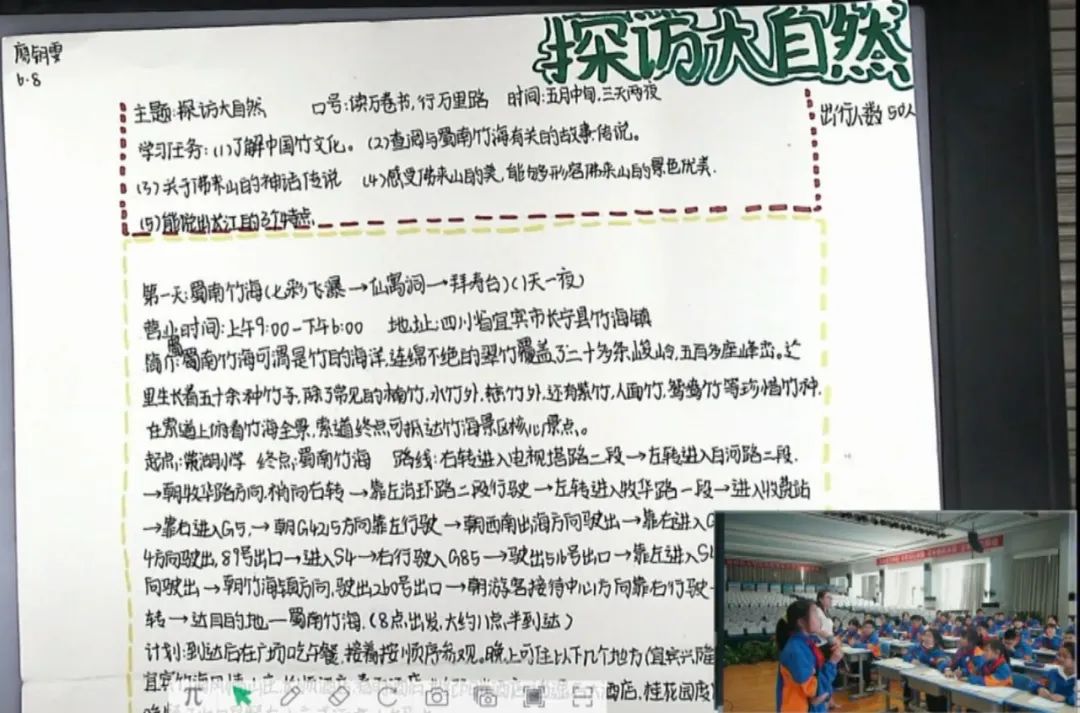 探访大自然
6.8
主题:探访大自然 口号:读万卷书,行万里路 时间:五月中旬,三天两夜
出行人数50人
学习任务:(1)了解中国竹文化。(2)查阅与蜀南竹海有关的故事传说。
(3)关于佛来山的神话传说 (4)感受佛来山的美,能够形容佛来山的景色优美.
(5)能说出长江的3个特点.
第一天:蜀南竹海(七彩飞瀑→仙寓洞→拜寿台)(1天一夜)
营业时间:上午9:00-下午6:00 地址:四川省宜宾市长宁县竹海镇
简介:蜀南竹海可谓是竹的海洋,连绵不绝的翠竹覆盖了二十多条峻岭,五百多座峰峦。这
里生长着五十余种竹子,除了常见的楠竹,水竹外,慈竹外,还有紫竹,人面竹,鸳鸯竹等珍惜竹种.
在索道上俯看竹海全景,索道终点可抵达竹海景区核心景点。
起点:棠湖小学 终点:蜀南竹海 路线:右转进入电视塔路二段→左转进入白河路二段.
→朝牧华路方向,稍向右转→靠左沿环路二段行驶→左转进入牧华路一段→进入收费站
→靠右进入G5,→朝G4215方向靠左行驶→朝西南出海方向驶出→靠右进入G
4方向驶出,89号出口→进入S4→右行驶入G85→驶出516号出口→靠左进入S4
向驶出→朝竹海镇方向,驶出260号出口→朝游客接待中心方向靠右行驶
转→达目的地—蜀南竹海.(8点出发,大约11点半到达)
计划:到达后在广场吃午餐,接着按顺序参观。晚上可住以下几个地方(宜宾兴隆
酒店,桂花园度